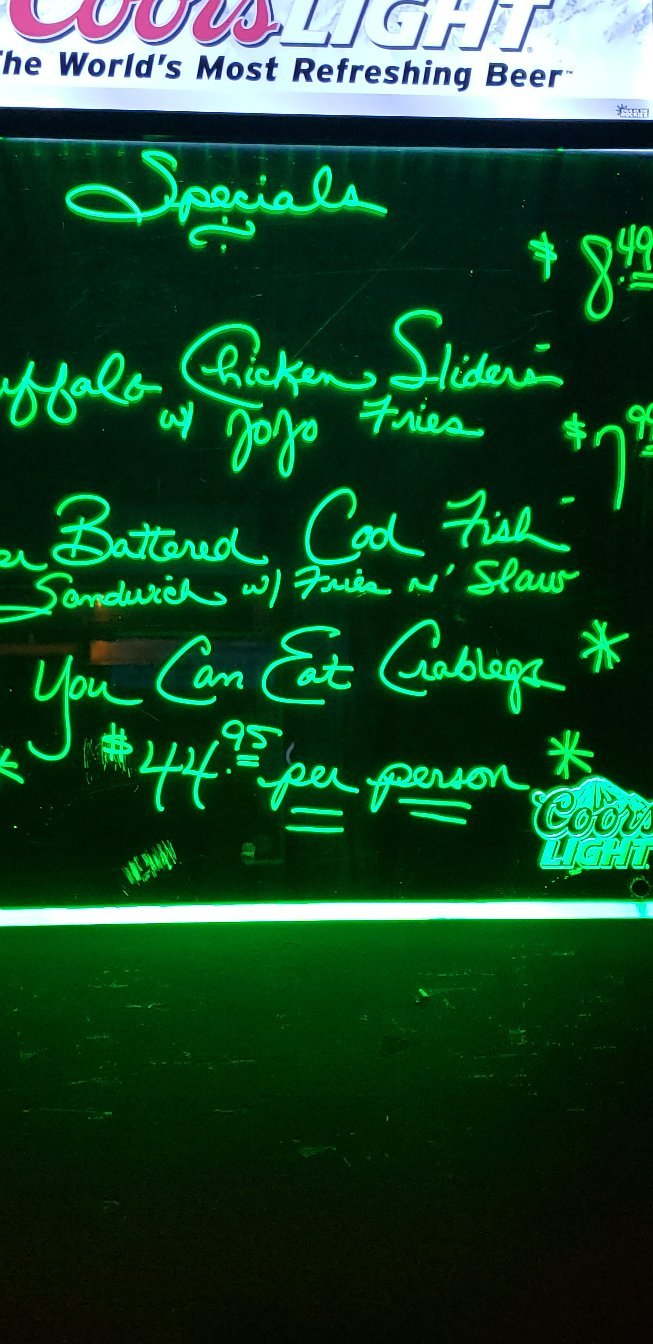 Coors LIGHT
The World's Most Refreshing Beer™
Specials
$8.49
uffalo Chicken Sliders
w/ JoJo Fries
$7.99
er Battered Cod Fish
Sandwich w/ Fries N' Slaw
You Can Eat Crablegs *
* $44.95 per person *
Coors
LIGHT